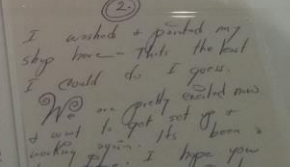 (2.)
I washed & painted my
shop here – Thats the least
I could do I guess.
We are pretty excited now
& want to get set up &
working again. Its been a
I hope your